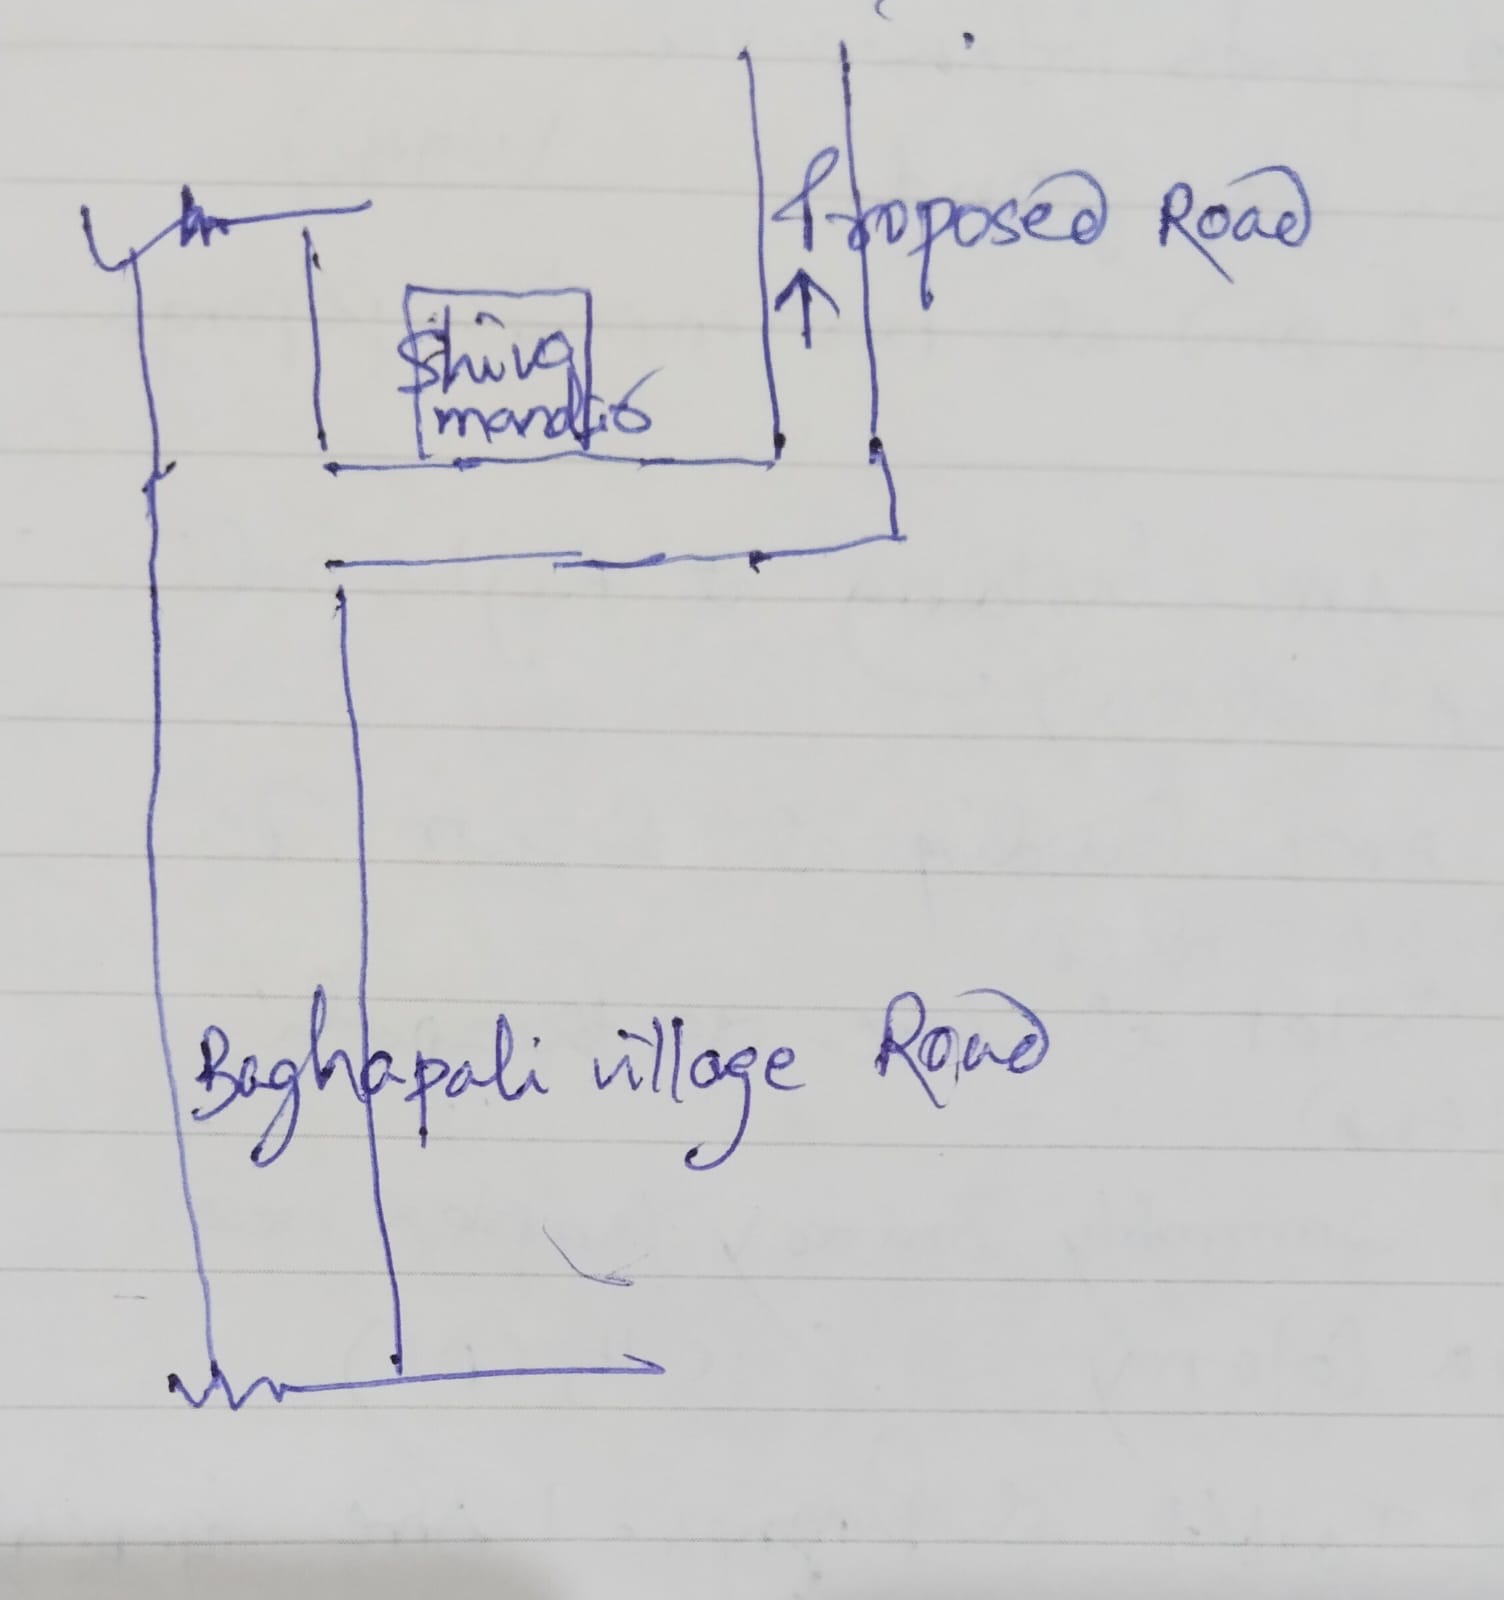 Proposed Road
Shiva
mandir
Baghapali village Road